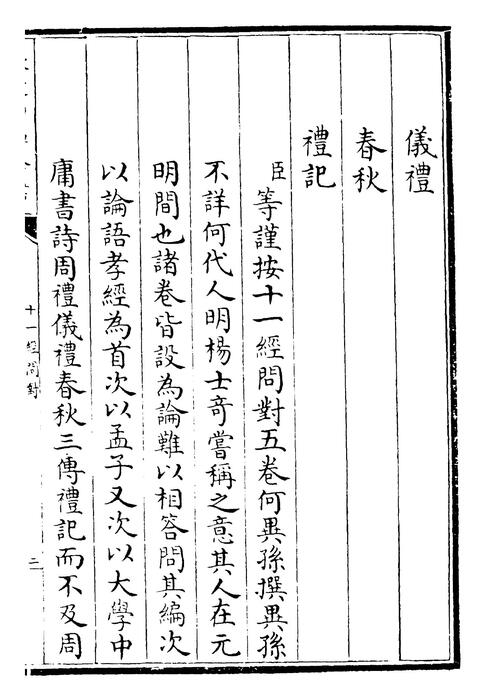 儀禮
春秋
禮記
臣等謹按十一經問對五卷何異孫撰異孫
不詳何代人明楊士奇嘗稱之意其人在元
明間也諸卷皆設為論難以相答問其編次
以論語孝經為首次以孟子又次以大學中
庸書詩周禮儀禮春秋三傳禮記而不及周
十一經問對
二